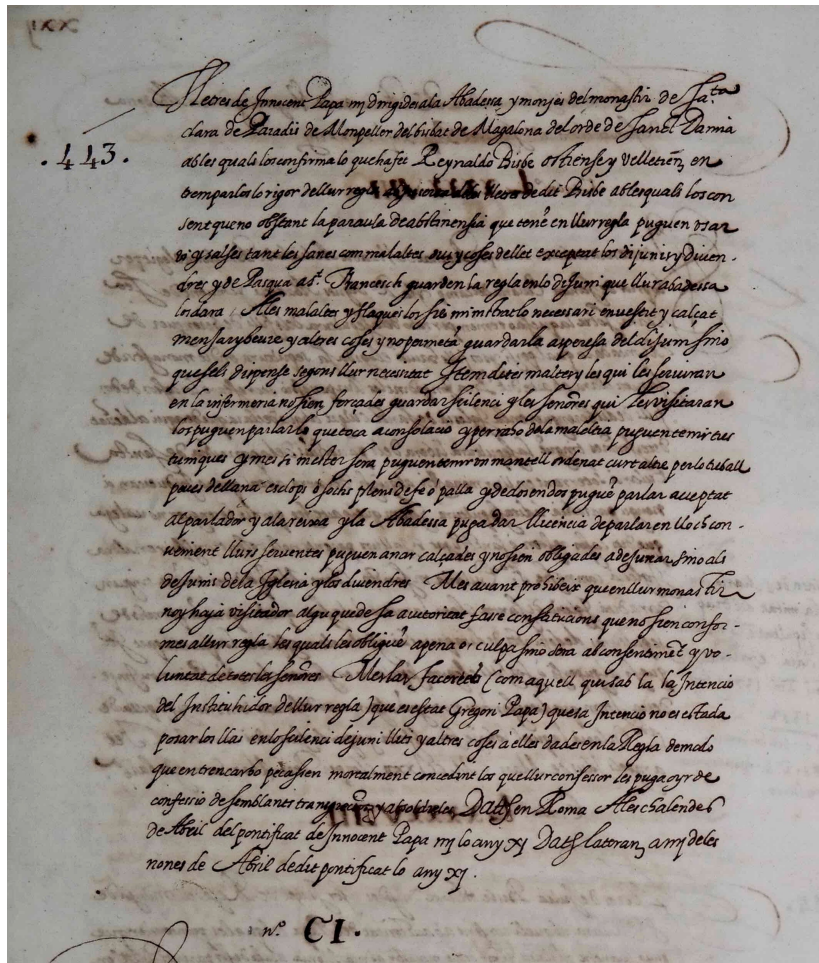 .443.
Lletres de Innocent Papa iiij dirigides a la Abadessa y monjes del monastir de Sa.ta
clara de Paradis de Monpeller del bisbat de Magalona del orde de Sanct Damia
ab les quals los confirma lo que ha fet Reynaldo Bisbe ostiense y velletrien en
tremparlos lo rigor de llur regla lletra de dit Bisbe ab les quals los con
sent que no obstant la paraula de abstinensia que tene en llur regla puguen usar
vi y salses tant les sanes com malaltes ous y coses de llet exceptat los dijunis y diven-
dres y de Pasqua a st. Francesch guarden la regla en lo dejuni que llur abadessa
los dara. A les malaltes y flaques los sie ministrat lo necessari en vestit y calçat
mensar y beure y altres coses y no permeta guardar la aspresa del dijuni sino
que seli dispense segons llur necessitat Item dites malaltes y les qui les serviran
en la infermeria no sien forçades guardar scilenci y les sonores qui les visitaran
los puguen parlar lo que toca a consolacio y per raho de la malaltia puguen tenir tres
tuniques y mes si mester sera puguen tenir un mantell ordenat curt altre per lo treball
peus de llana esclops o sochs plens de fe o palla y de dos en dos pugue parlar acceptat
al parlador y a la reixa y la Abadessa puga dar llicencia de parlar en lloch con-
venient llurs serventes puguen anar calçades y no sien obligades a dejunar sino als
dejunis de la Iglesia y los divendres Mes avant prohibeix que en llur monastir
noy haja visitador algu que de sa autoritat fasse constitucions que no sien confor-
mes a llur regla les quals les obligue a pena o culpa sino sera ab consentimet y vo-
luntat de totes les sonores Mes lar (com aquell qui sab la la Intencio
del Instituhidor de llur regla) que es estat Gregori Papa) que sa Intencio no es estada
posar los llas en lo scilenci dejuni llits y altres coses a elles dades en la Regla de modo
que en trencarho pecassien mortalment concedint los que llur confessor les puga oyr de
confessio de semblants y absoldreles Datts en Roma A les chalendes
de Abril del pontificat de Innocent Papa iiij lo any xj Datts lateran a iiij de les
nones de Abril de dit pontificat lo any xj.
n.o CI.